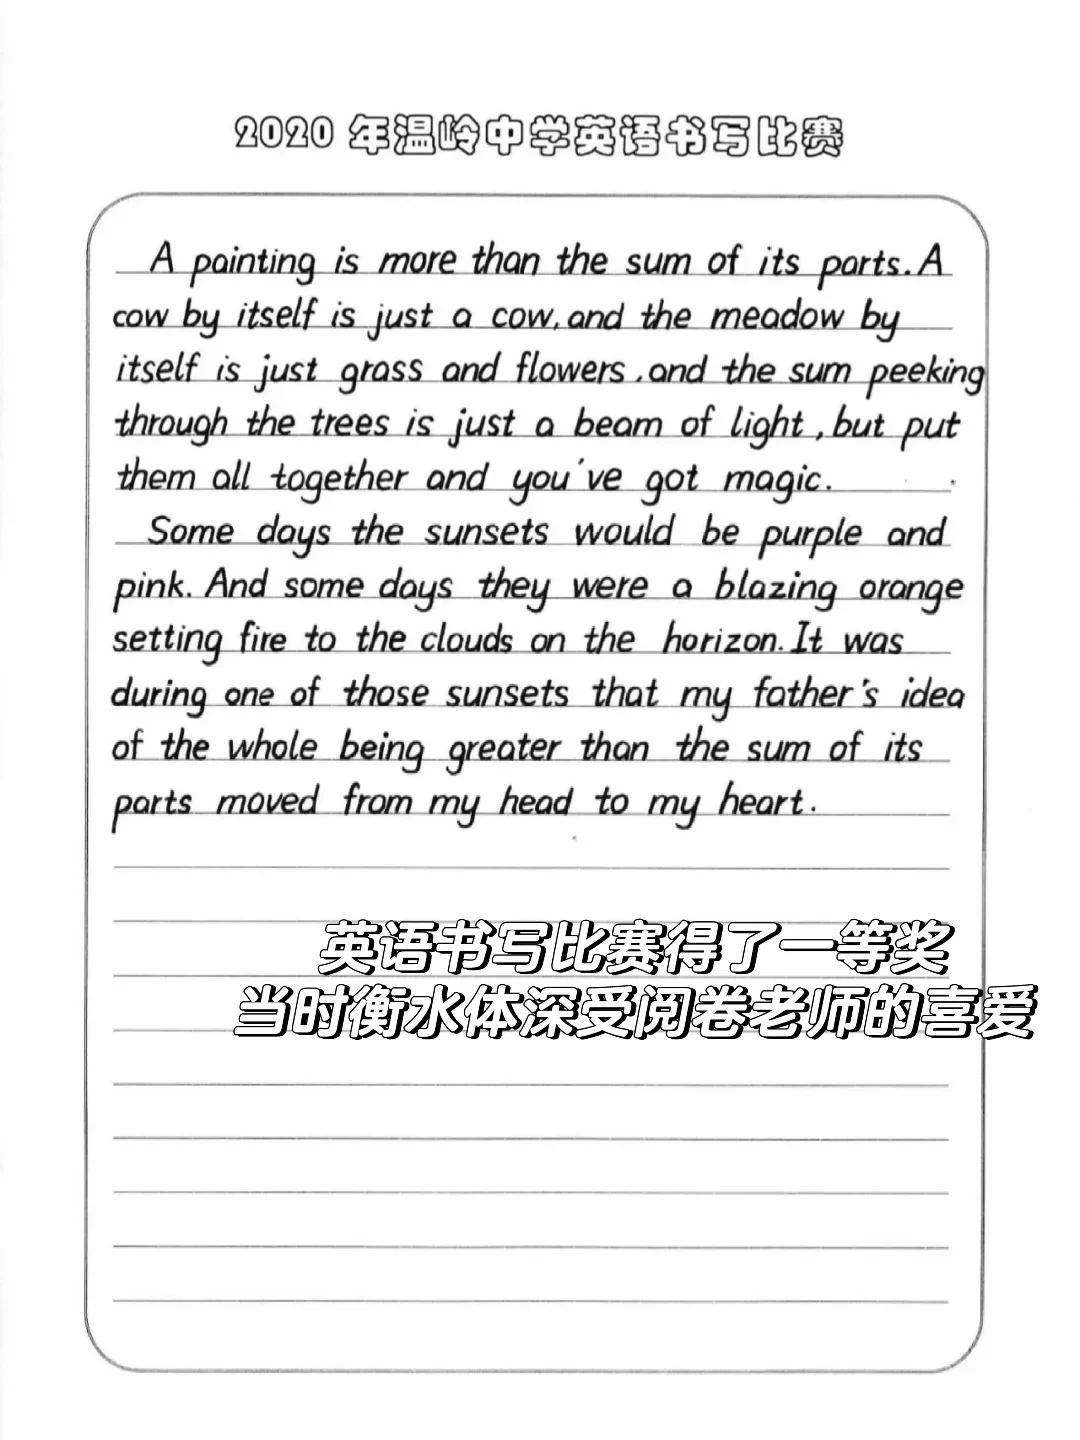 2020 年温岭中学英语书写比赛
A painting is more than the sum of its parts. A
cow by itself is just a cow, and the meadow by
itself is just grass and flowers, and the sum peeking
through the trees is just a beam of light, but put
them all together and you've got magic.
Some days the sunsets would be purple and
pink. And some days they were a blazing orange
setting fire to the clouds on the horizon. It was
during one of those sunsets that my father's idea
of the whole being greater than the sum of its
parts moved from my head to my heart.
英语书写比赛得了一等奖
当时衡水体深受阅卷老师的喜爱